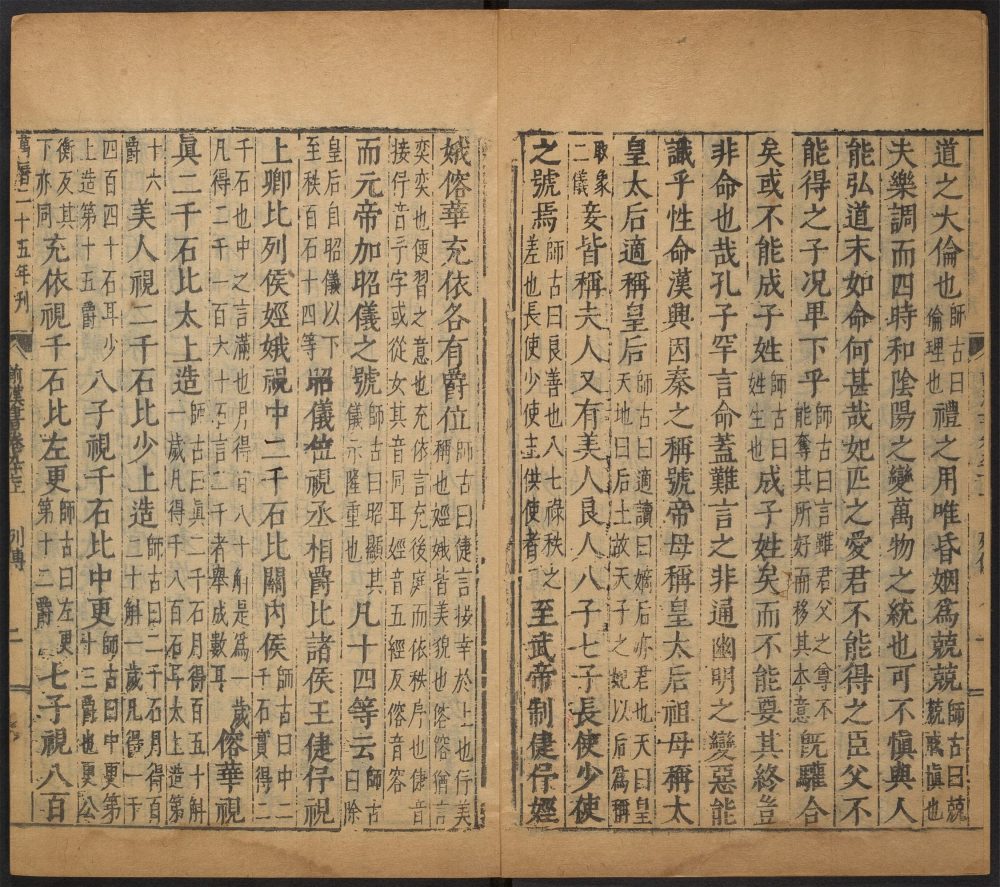 道之大倫也師古曰倫理也禮之用唯昏姻爲兢兢師古曰兢兢戒愼也
夫樂調而四時和陰陽之變萬物之統也可不愼與人
能弘道末如命何甚哉妃匹之愛君不能得之臣父不
能得之子況卑下乎師古曰言雖君父之尊不能奪其所好而移其本意旣驩合
矣或不能成子姓師古曰姓生也成子姓矣而不能要其終豈
非命也哉孔子罕言命蓋難言之非通幽明之變惡能
識乎性命漢興因秦之稱號帝母稱皇太后祖母稱太
皇太后適稱皇后師古曰適讀曰嫡后亦君也天曰皇天地曰后土故天子之妃以后爲稱
取象二儀妾皆稱夫人又有美人良人八子七子長使少使
之號焉師古曰良善也八七祿秩之差也長使少使主供使者至武帝制倢伃娙
娥傛華充依各有爵位師古曰倢言接幸於上也伃美稱也娙娥皆美貌也傛猶言
奕奕也便習之意也充依言充後庭而依秩序也倢音接伃音予字或從女其音同耳娙音五經反傛音容
而元帝加昭儀之號師古曰昭顯其儀示隆重也凡十四等云師古曰除
皇后自昭儀以下至秩百石十四等昭儀位視丞相爵比諸侯王倢伃視
上卿比列侯娙娥視中二千石比關內侯師古曰中二千石實得二
千石也中之言滿也月得百八十斛是爲一歲凡得二千一百六十石言二千者舉成數耳傛華視
眞二千石比太上造師古曰眞二千石月得百五十斛一歲凡得千八百石耳太上造第
十六爵美人視二千石比少上造師古曰二千石月得百二十斛一歲凡得一千
四百四十石耳少上造第十五爵八子視千石比中更師古曰中更第十三爵也更公
衡反其下亦同充依視千石比左更師古曰左更第十二爵七子視八百
萬曆二十五年刊 前漢書卷 列傳 二